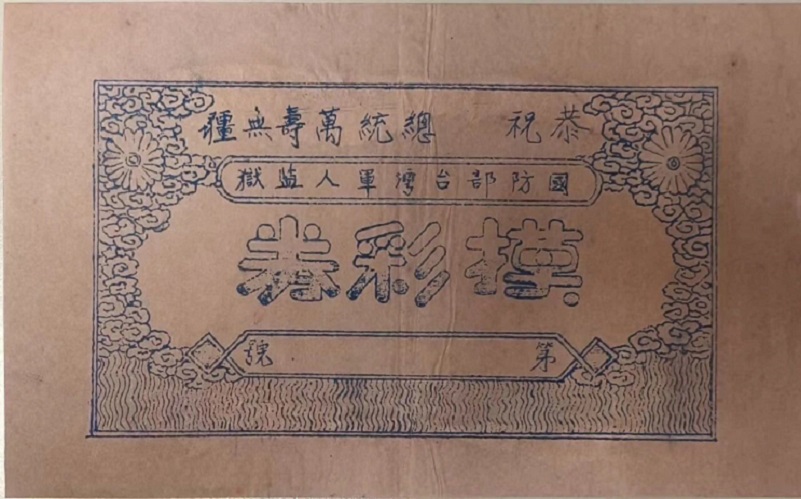 恭祝 總統萬壽無疆
國防部台灣軍人監獄
摸彩券
第 號